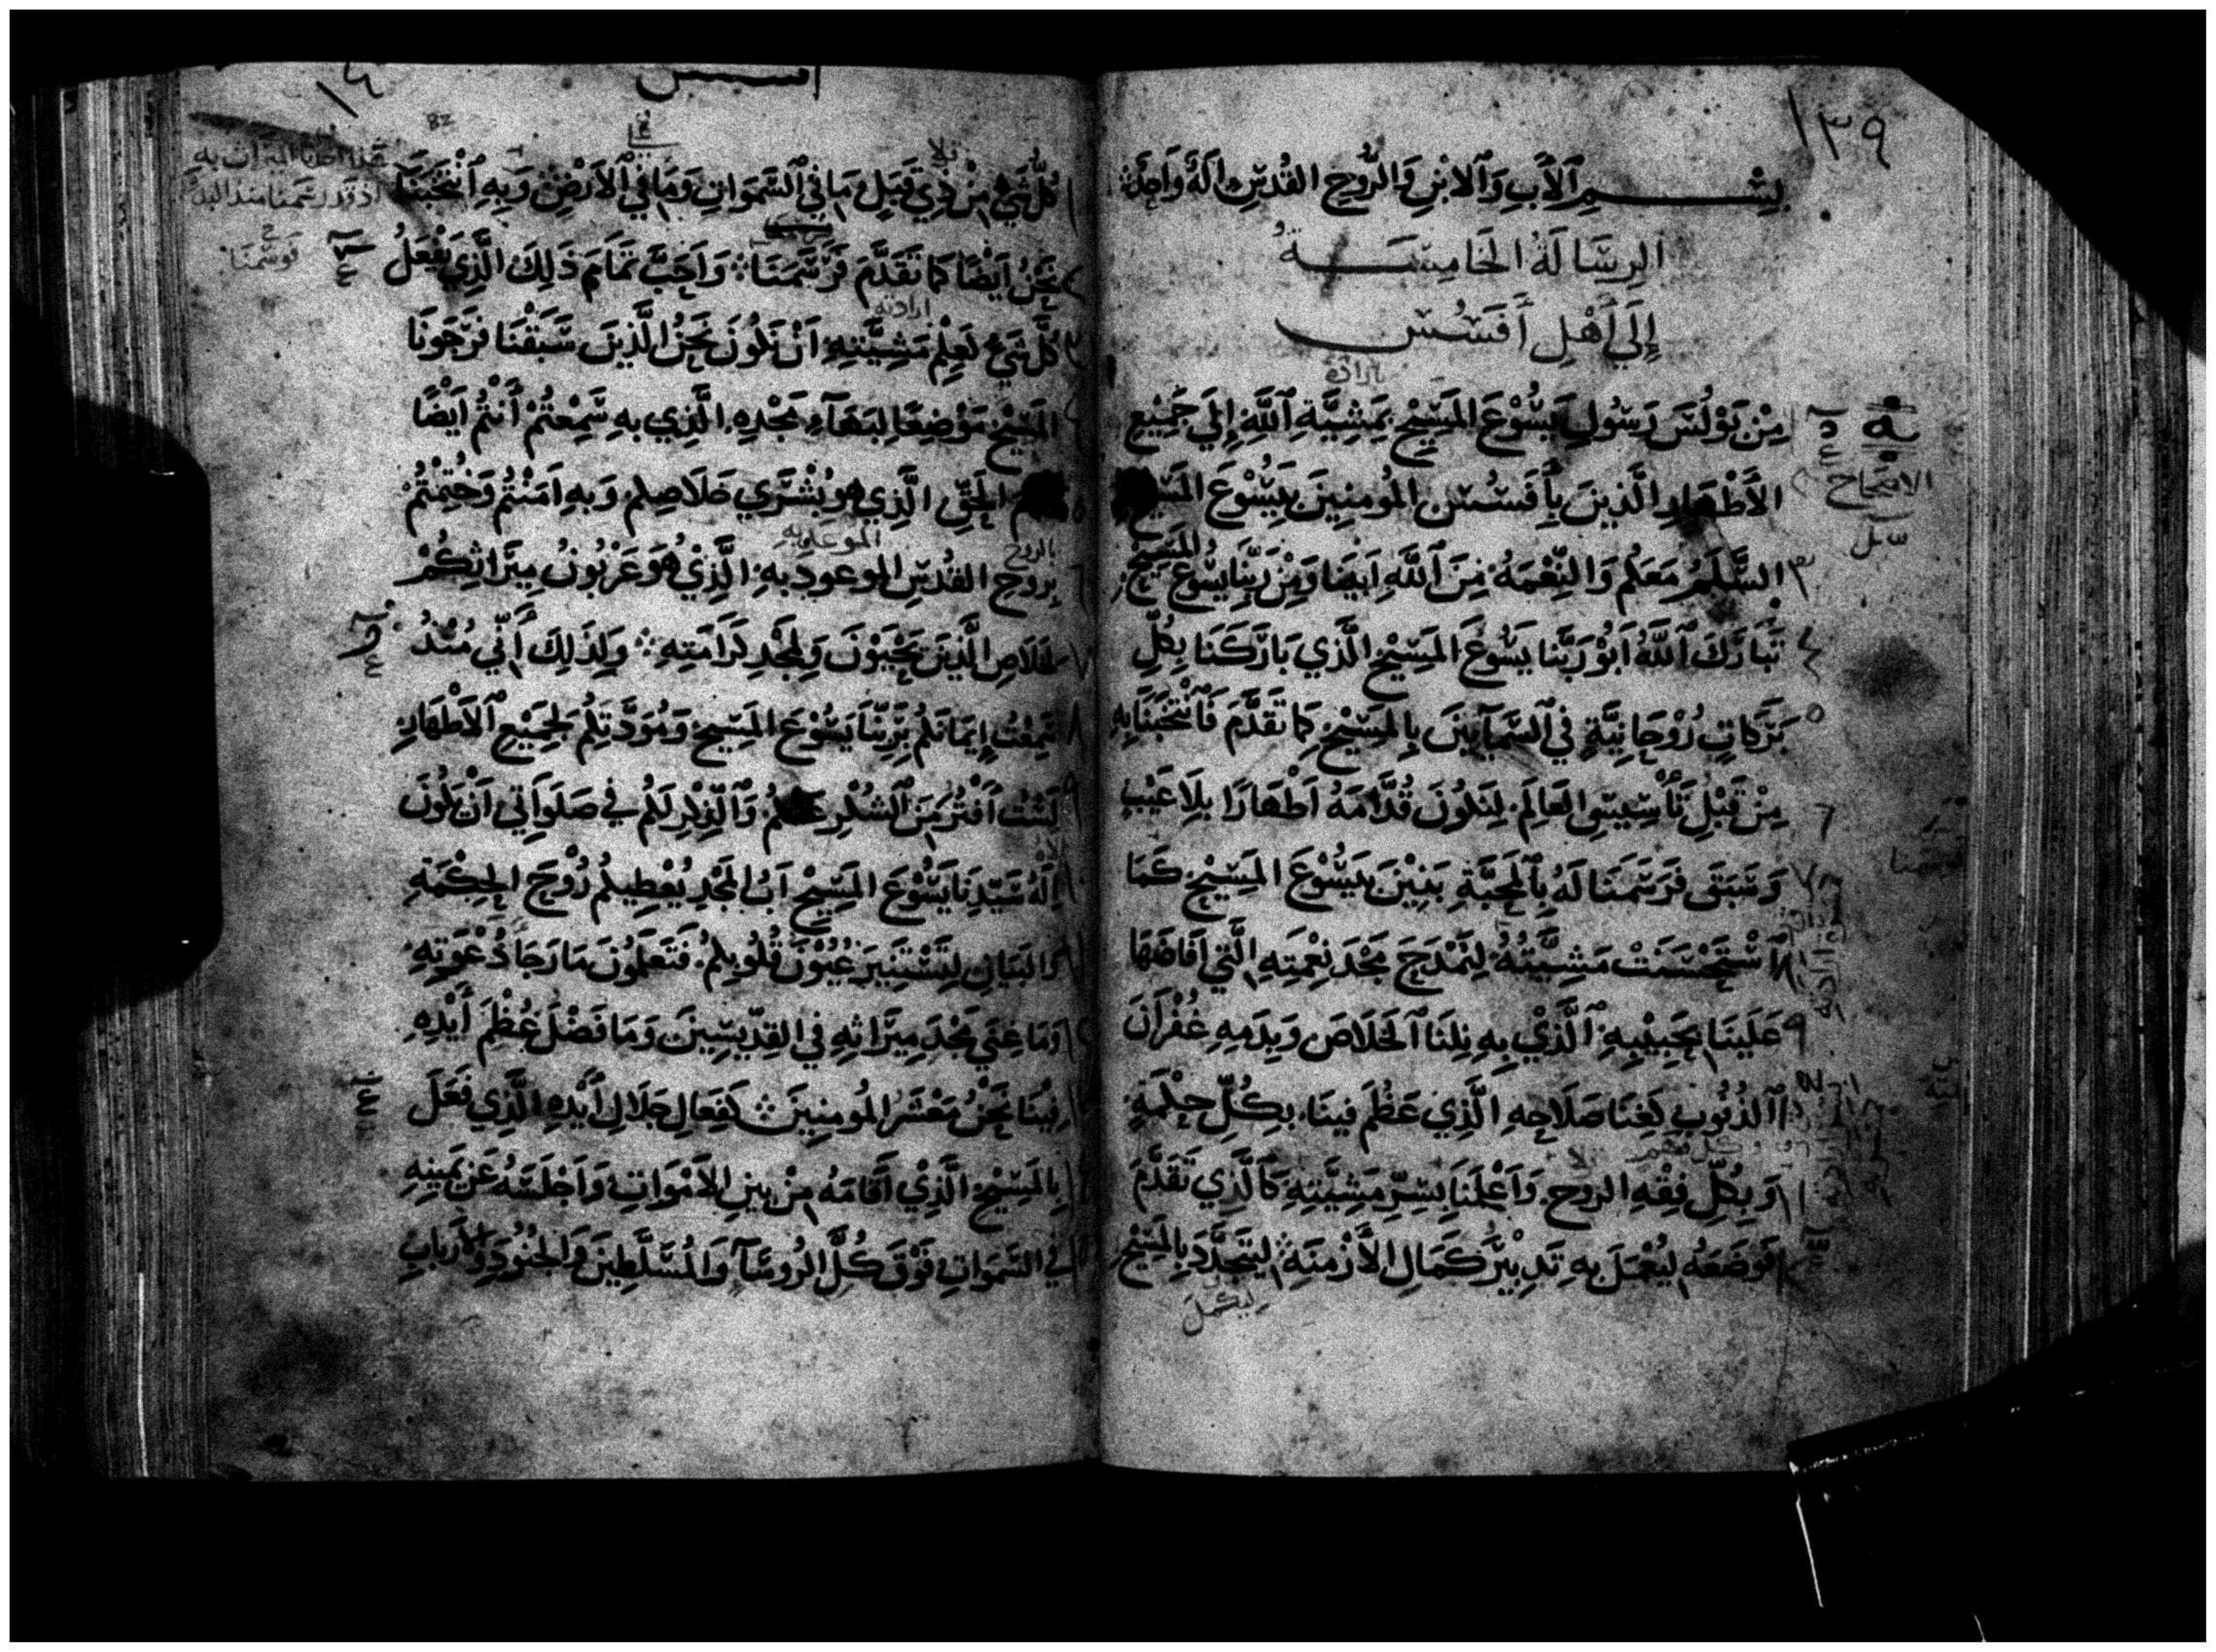 ١٣٩
بِسْمِ ٱلْأَبِ وَٱلْابْنِ وَٱلرُّوحِ القُدُسِ الَهٌ وَاحِدٌ
الرِسَالَةُ الخَامِسَةُ
إِلَي أَهْلِ أَفَسُسَ
بارادة
مِنْ بَوْلُسَ رَسُولِ يَسُوْعَ المَسِيْحِ بِمَشِيَّةِ ٱللَّهِ إِلَي جَمِيْعِ
الأَطْهَارِ الَّذِينَ بِأَفَسُسَ المُومِنِينَ بِيَسُوْعَ المَسِيحِ
الاصحاح
السَّلَمُ مَعَكُم وَالنِّعْمَهُ مِنَ ٱللَّهِ ابَينَا وَمِنْ رَبِّنَا يَسُوعَ المَسِيْحِ
تَبَارَكَ ٱللَّهُ ابُوْ رَبِّنَا يَسُوعَ المَسِيْحِ الَّذِي بَارَكَنَا بِكُلِّ
بَرَكَاتٍ رُوْحَانِيَّةٍ فِي ٱلسَّمَآيِينَ بِالمَسِيْحِ كَمَا تَقَدَّمَ فَٱنْتَخَبَنَا بِهِ
مِنْ قَبْلِ تَأْسِيسِ العَالَمِ لِنَكُونَ قُدَّامَهُ أَطْهَارًا بِلَا عَيْبٍ
وَسَبَقَ فَرَسَمَنَا لَهُ بِٱلْمَحَبَّةِ بَنِيْنَ بِيَسُوْعَ المَسِيحِ كَمَا
ٱسْتَحْسَنَتْ مَشِيَّتُهُ لِيُمْدَحَ مَجْدَ نِعْمَتِهِ الَّتِي افَاضَهَا
عَلَينَا بِحَبِيْبِهِ ٱلَّذِيْ بِهِ نِلْنَا ٱلْخَلَاصَ وَبِدَمِهِ غُفْرَانَ
الذُنُوبِ كَغِنَا صَلَاحِهِ الَّذِي عَظُمَ فِينَا بِكُلِّ حِكْمَةٍ
وَبِكُلِّ فِقْهِ الروح وَاَعْلَمَنَا بِسِرِّ مَشِيَّتِهِ كَالَّذِي تَقَدَّمَ
فَوَضَعَهُ لِيُعْمَلَ بِهِ تَدبِيْرُ كَمَالِ الأَزْمِنَةِ لِيَتَجَدَّدَ بِالمَسِيْحِ
ليكمل
١٤
افسس
82
هذا احل بنا الميراث به
اذ قد رسمنا منذ البدو
فوسمنا
كُلُّ شَيْءٍ مِنْ ذِي قَبَلٍ مَا فِي ٱلسَّمَوَاتِ وَمَا فِي ٱلأَرْضِ وَبِهِ ٱنْتَخَبَنَا
نَحْنُ ايْضًا كَمَا تَقَدَّمَ فَرَسَمَنَا وَاحَبَّ تَمَامَ ذَلِكَ الَّذِي يَفْعَلُ
ارادته
كُلَّ شَيْءٍ لِعِلْمِ مَشِيَّتِهِ انْ نَكُونَ نَحْنُ الَّذِينَ سَبَقْنَا فَرَجَوْنَا
المَسِيْحَ مَوْضِعًا لِبَهَآءِ مَجْدِهِ الَّذِي بِهِ سَمِعْتُمْ أَنْتُمْ ايْضًا
الحَقِّ الَّذِي هُوَ بُشْرَي خَلَاصِكُم وَبِهِ امَنْتُمْ وَخُتِمْتُمْ
بالروح الموعد به
بِرُوحِ القُدُسِ المَوعود بِهِ الَّذِيْ هُوَ عَرْبُونُ مِيرَاثِكُمْ
لِخَلَاصِ الَّذِينَ يَحْيَوْنَ وَلِمَجْدِ كَرَامَتِهِ وَلِذَلِكَ أَنِّي مُنْذُ
سَمِعْتُ إِيمَانَكُم بِرَبِّنَا يَسُوْعَ المَسِيحِ وَمُوَدَّتِكُم لِجَمِيْعِ ٱلأَطْهَارِ
لَسْتُ افْتُرُ مِنَ ٱلشُكْرِ عَنْكُمْ وَٱلذِكْرِ لَكُم فِي صَلَوَاتِي انْ يَكُونَ
الَهُ سَيِّدِنَا يَسُوْعَ المَسِيْحِ ابُ المَجْدِ يُعْطِيكُم رُوْحَ الحِكْمَةِ
وَالبَيَانِ لِتَسْتَنِيرَ عُيُوْنُ قُلُوبِكُم فَتَعْلَمُونَ مَا رَجَا دُعْوَتِهِ
وَمَا غِنَي مَجْدِ مِيرَاثِهِ فِي القِدِّيسِينَ وَمَا فَضْلَ عُظْمِ أَيْدِهِ
فِيْنَا نَحْنُ مَعْشَرَ المُومِنِينَ كَفَعَالِ جَلَالِ أَيْدِهِ الَّذِي فَعَلَ
بِالمَسِيْحِ الَّذِيْ اقَامَهُ مِنْ بَينِ الأَمْوَاتِ وَاجْلَسَهُ عَن يَمِينِهِ
فِي السَّمَوَاتِ فَوْقَ كُلِّ الرُوسَآ وَالمُسَلَّطِينَ وَالجُنُودِ وَالأَربَابِ